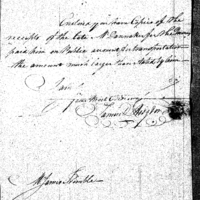 Enclosed you have Copies of the
receipts of the late Mr Donnaker for the
paid him on Public account for transportation
the amount much larger than stated by him
I am
your
Samuel Hodgdon
Mr James Trimble